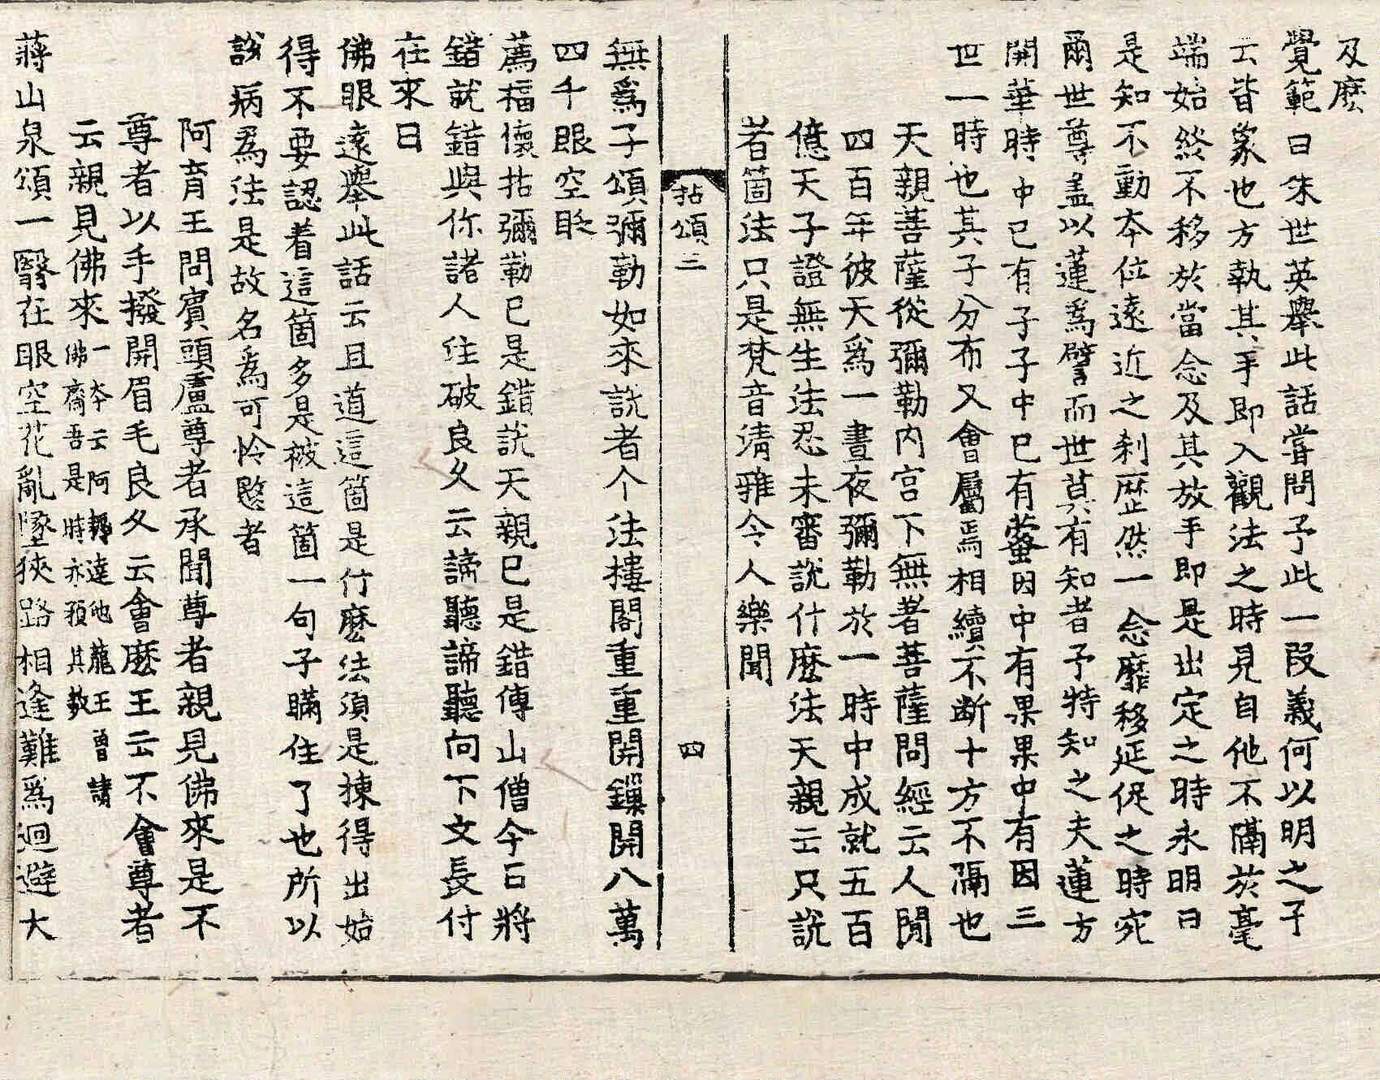 及麽
覺範曰朱世英舉此話甞問予此一段義何以明之予
云皆象也方執其手即入觀法之時見自他不隔於毫
端始終不移於當念及其放手即是出定之時永明曰
是知不動本位遠近之刹歴然一念靡移延促之時宛
爾世尊盖以蓮爲譬而世莫有知者予特知之夫蓮方
開華時中已有子子中已有蘂因中有果果中有因三
世一時也其子分布又會屬焉相續不断十方不隔也
天親菩薩從彌勒内宫下無著菩薩問經云人間
四百年彼天爲一晝夜彌勒於一時中成就五百
億天子證無生法忍未審說什麽法天親云只說
者箇法只是梵音清雅令人樂聞
拈頌三
四
無爲子頌彌勒如來說者个法樓閣重重開鏁開八萬
四千眼空眨
薦福懷拈彌勒已是錯說天親已是錯傳山僧今日將
錯就錯與你諸人注破良久云諦聽諦聽向下文長付
在來日
佛眼遠舉此話云且道這箇是什麽法須是揀得出始
得不要認着這箇多是被這箇一句子瞞住了也所以
說病爲法是故名爲可怜愍者
阿育王問賓頭盧尊者承聞尊者親見佛來是不
尊者以手撥開眉毛良久云會麽王云不會尊者
云親見佛來一本云阿耨達池龍王曾請
佛齋吾是時亦預其數
蔣山泉頌一翳在眼空花亂墜狹路相逢難爲迴避大